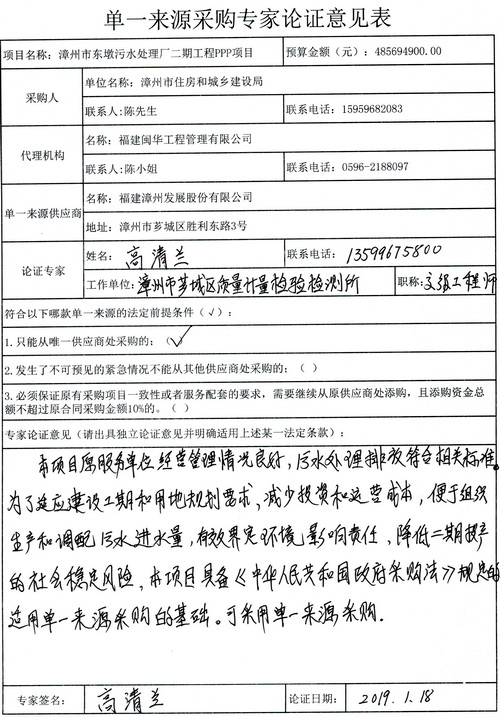 单一来源采购专家论证意见表
项目名称：漳州市东墩污水处理厂二期工程PPP项目 预算金额（元）：485694900.00
采购人 单位名称：漳州市住房和城乡建设局
联系人：陈先生 联系电话：15959682083
代理机构 名称：福建闽华工程管理有限公司
联系人：陈小姐 联系电话：0596-2188097
单一来源供应商 名称：福建漳州发展股份有限公司
地址：漳州市芗城区胜利东路3号
论证专家 姓名：高清兰 联系电话：13599675800
工作单位：漳州市芗城区质量计量检验检测所 职称：高级工程师
符合以下哪款单一来源的法定前提条件（√）：
1.只能从唯一供应商处采购的；（√）
2.发生了不可预见的紧急情况不能从其他供应商处采购的；（ ）
3.必须保证原有采购项目一致性或者服务配套的要求，需要继续从原供应商处添购，且添购资金总
额不超过原合同采购金额10%的。（ ）
专家论证意见（请出具独立论证意见并明确适用上述某一法定条款）：
本项目原服务单位经营管理情况良好，污水处理排放符合相关标准。
为了适应建设工期和用地规划要求，减少投资和运营成本，便于组织
生产和调配污水进水量，有效界定环境影响责任，降低二期投产
的社会稳定风险，本项目具备《中华人民共和国政府采购法》规定的
适用单一来源采购的基础。可采用单一来源采购。
专家签名：高清兰 论证日期：2019.1.18